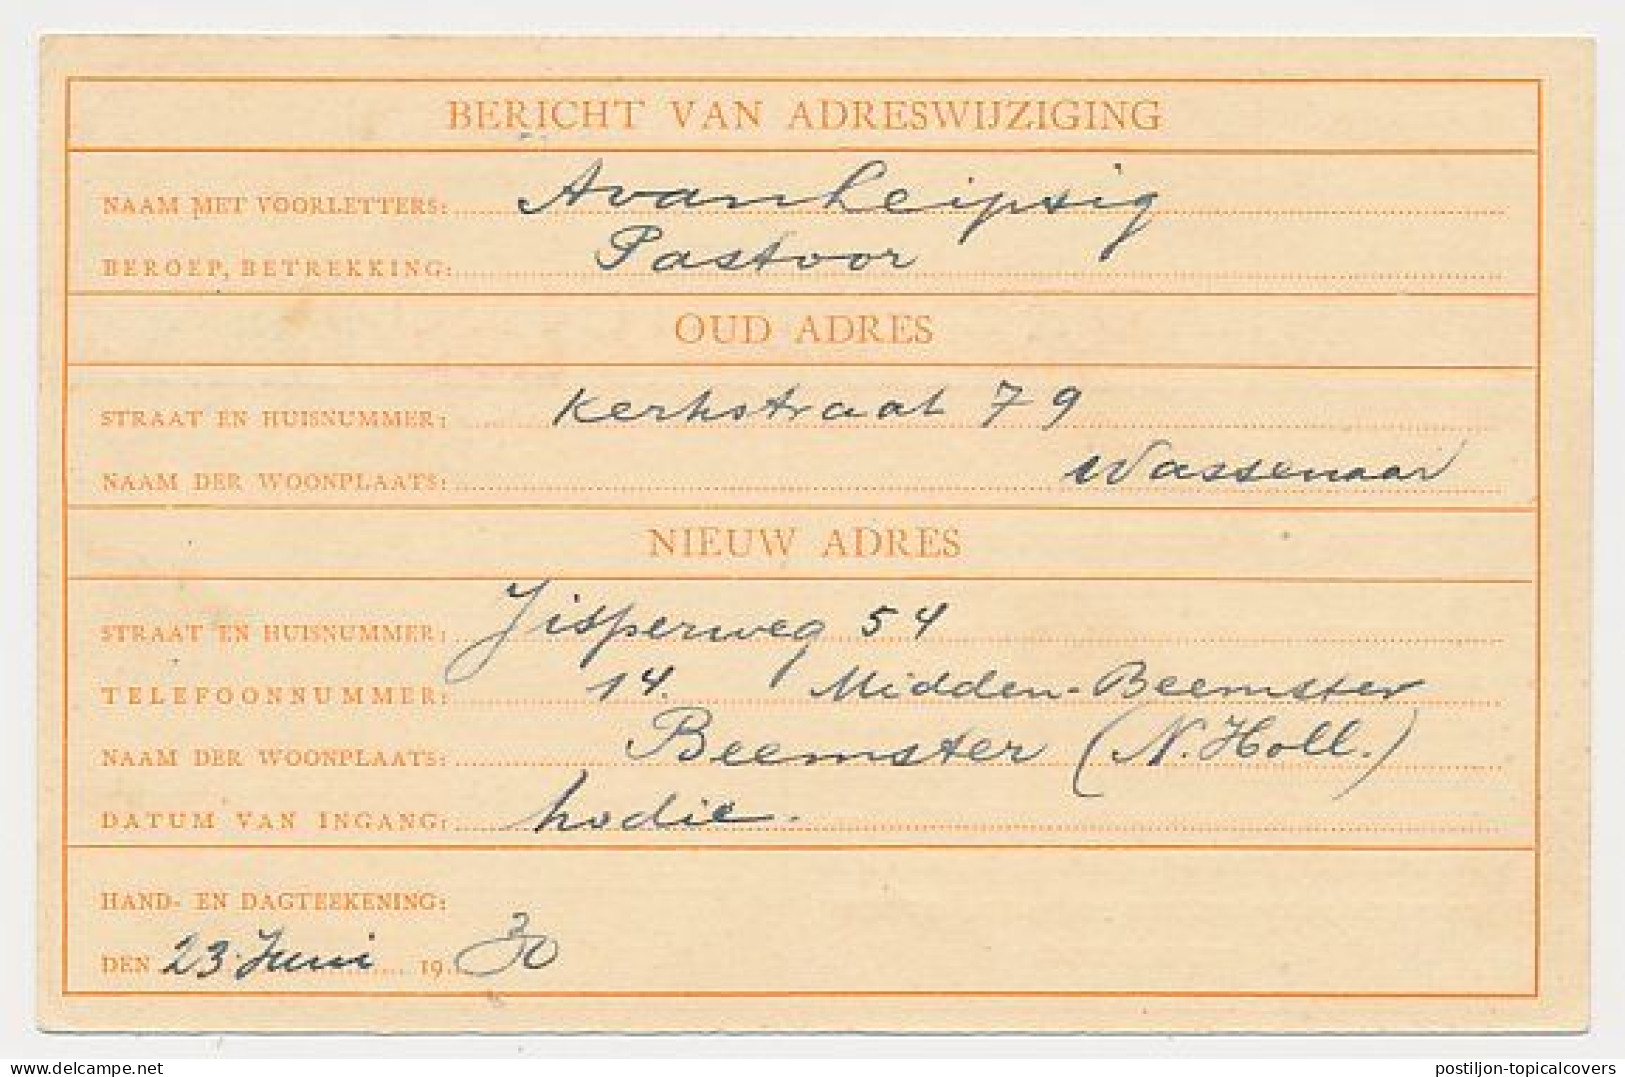 BERICHT VAN ADRESWIJZIGING
NAAM MET VOORLETTERS: A van Leipsig
BEROEP, BETREKKING: Pastoor
OUD ADRES
STRAAT EN HUISNUMMER: Kerkstraat 79
NAAM DER WOONPLAATS: Wassenaar
NIEUW ADRES
STRAAT EN HUISNUMMER: Jisperweg 54
TELEFOONNUMMER: 14. Midden-Beemster
NAAM DER WOONPLAATS: Beemster (N. Holl.)
DATUM VAN INGANG: hodie.
HAND- EN DAGTEEKENING:
DEN 23 Juni 1930
www.delcampe.net
postiljon-topicalcovers